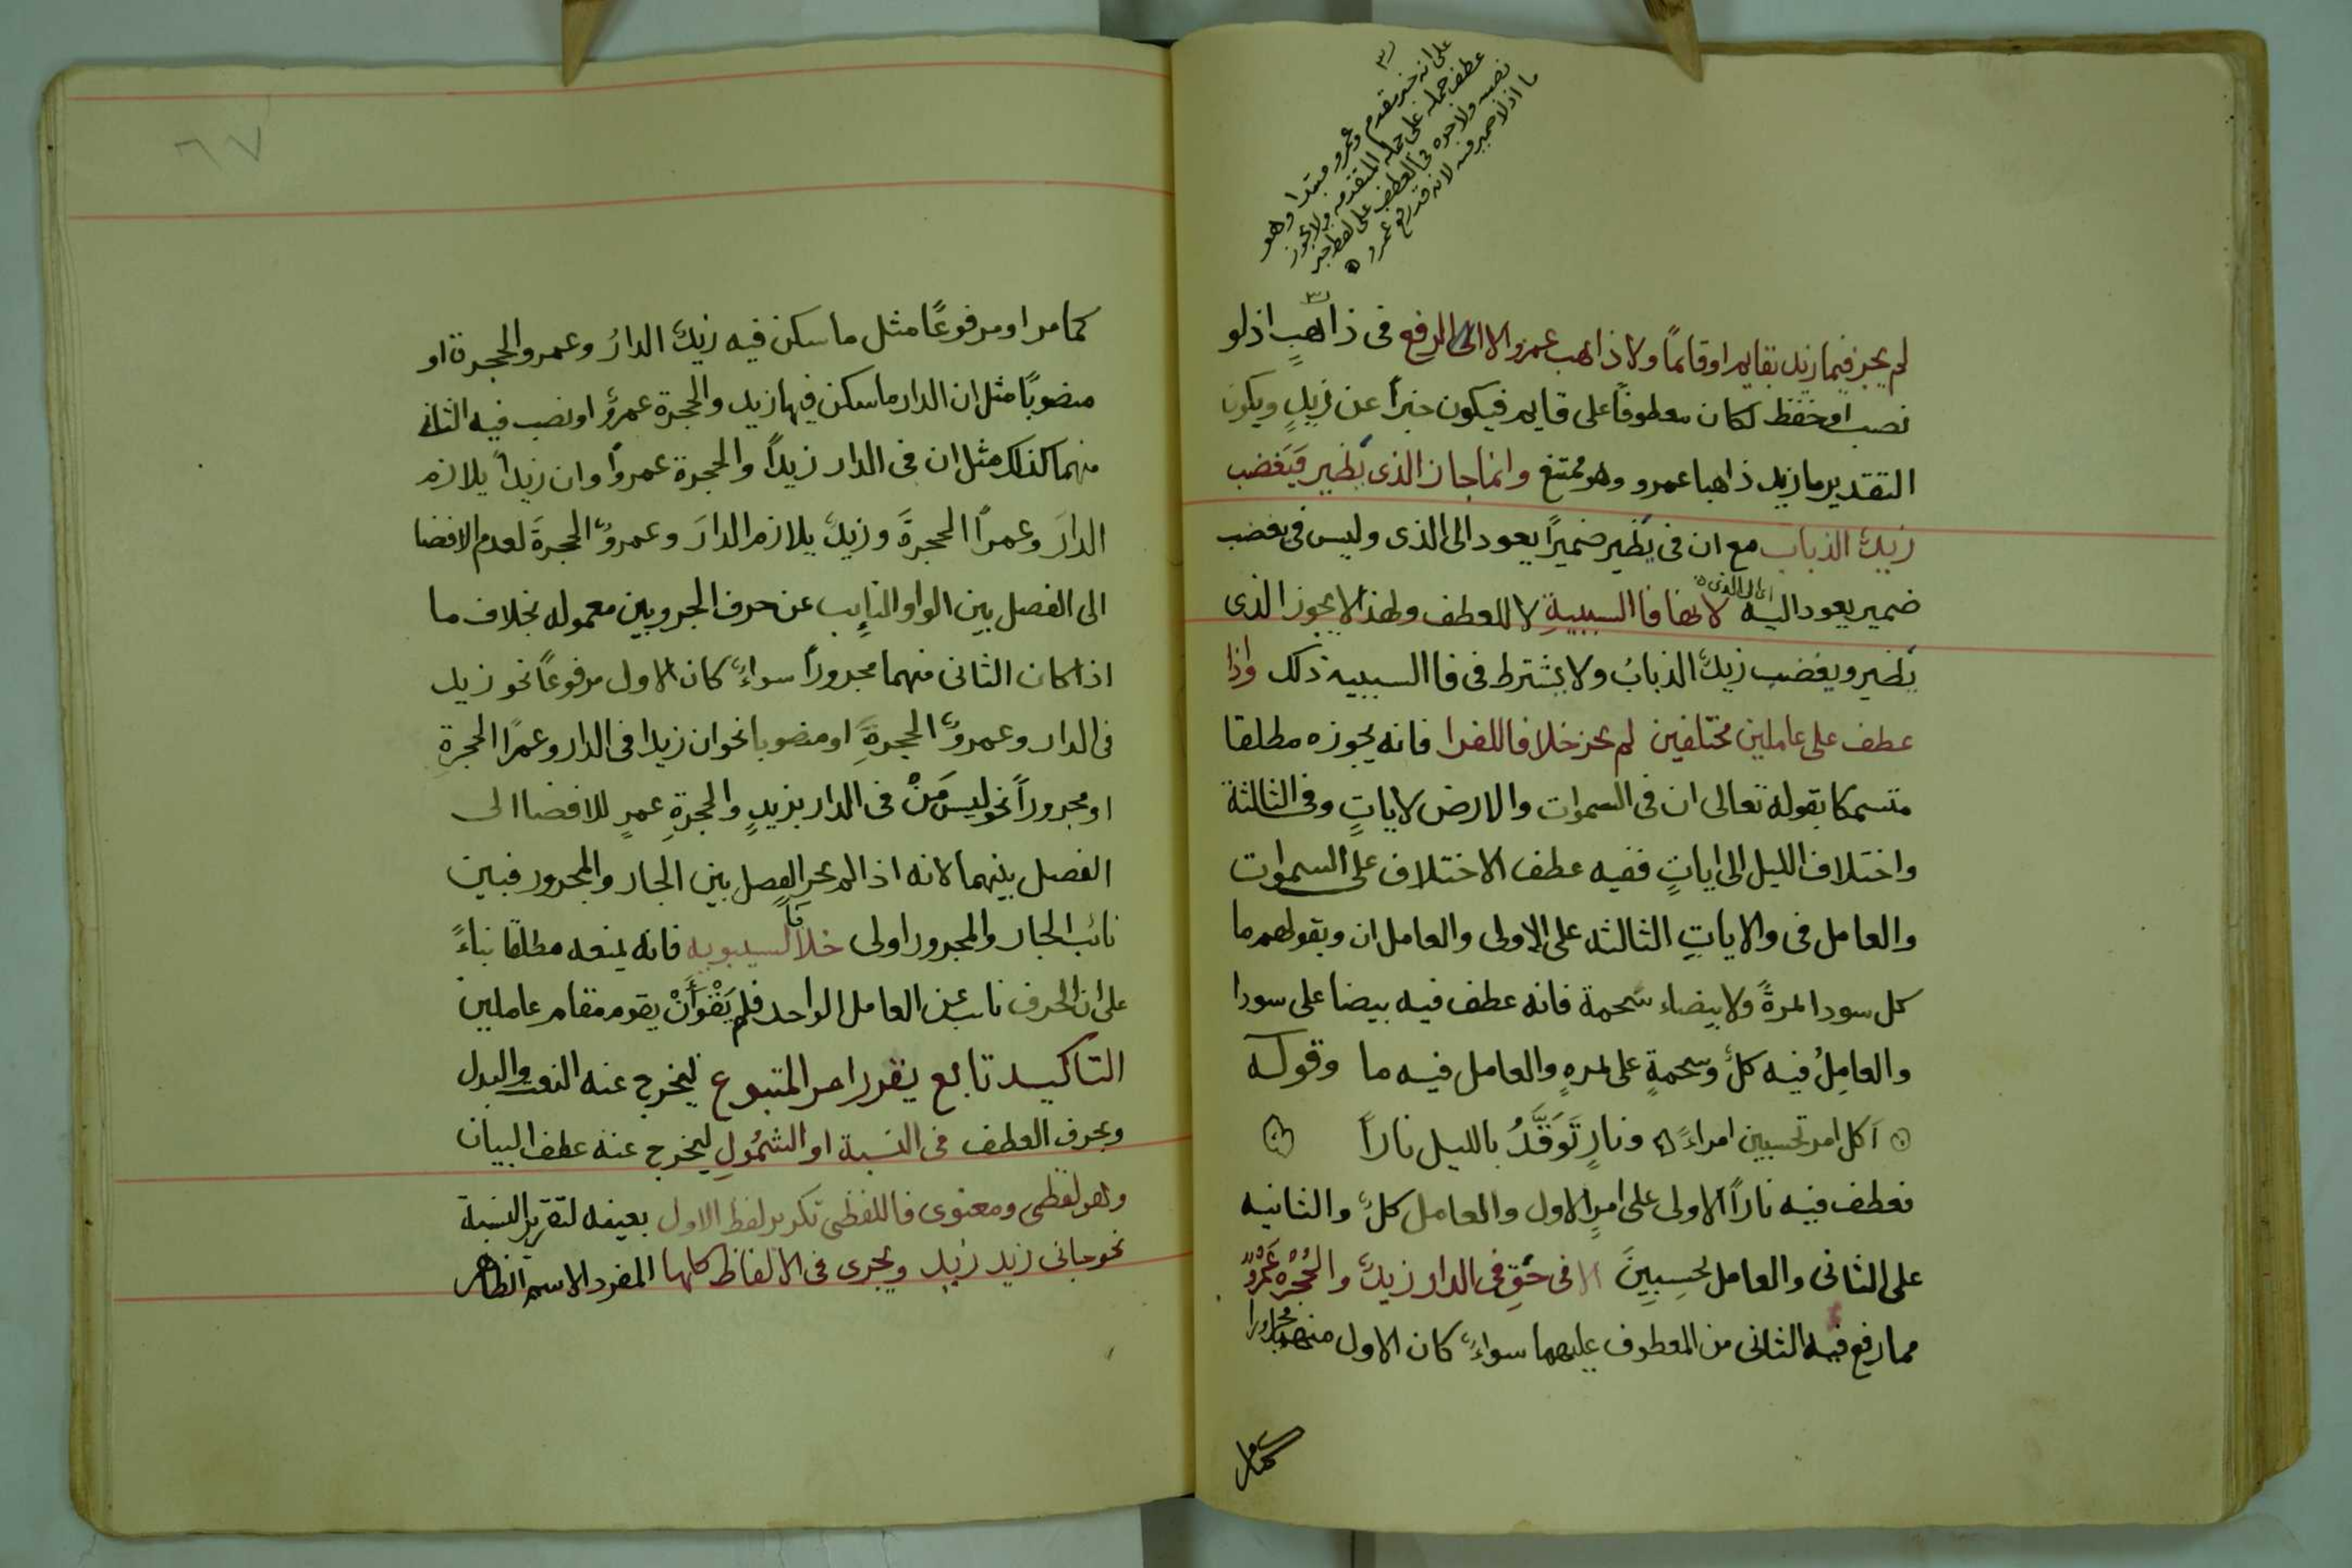 على انه خبر مقدم وعمرو مبتدا وهو
عطف جملة على جملة المتقدمه ولا يجوز
نصبه ولا جره في العطف على لفظ خبر
ما اذ لا ضمير فيه لانه قد رفع عمرو
لم يجز فيما زيد بقايم او قائمًا ولا ذاهب عمرو الا الرفع في ذاهبٍ اذ لو
نصب او خفظ لكان معطوفًا على قايم فيكون خبرًا عن زيدٍ ويكون
التقدير ما زيد ذاهبا عمرو وهو ممتنع وانما جاز الذى يَطير فَيَغضب
زيدٌ الذباب مع ان في يَطير ضميرًا يعود الى الذى وليس في يغضب
ضمير يعود اليه لانها فا السببيةِ لا للعطف ولهذا لا يجوز الذى
اى الى الذى
يَطير ويغضب زيدٌ الذبابُ ولا يشترط في فا السببيه ذلك واذا
عطف على عاملين مختلفين لم يجز خلافا للفرا فانه يجوزه مطلقا
متسمكا بقوله تعالى ان في السموات والارض لاياتٍ وفي الثالثة
واختلاف الليل الى اياتٍ ففيه عطف الاختلاف على السموات
والعامل في والاياتِ الثالثه على الاولى والعامل ان وبقولهم ما
كل سودا تمرةً ولا بيضاء شحمة فانه عطف فيه بيضا على سودا
والعامِلُ فيه كلُّ وشحمةٍ على تمرهٍ والعامل فيه ما وقوله
أكل امر تحسبين امراءً ونارٍ تَوَقَّدُ بالليل نارًا
فعطف فيه نارًا الاولى على امرٍ الاول والعامل كلٌ والثانيه
على الثانى والعامل تحسِبِينَ الا في نحوِ في الدار زيدٌ والحُجْرَة عَمْرٌو
مما رفع فيه الثانى من المعطوف عليهما سواءٌ كان الاول منهما مجرورا
كما مر
٦٧
كما مر او مرفوعًا مثل ما سكن فيه زيدٌ الدارُ وعمرو الحجرة او
منصوبًا مثل ان الدار ما سكن فيها زيد والحجرة عمروٌ او نصب فيه الثانى
منهما كذلك مثل ان في الدار زيدًا والحجرة عمروًا وان زيدًا يلازم
الدارَ وعمرًا الحجرةَ وزيدٌ يلازم الدارَ وعمروٌ الحجرةَ لعدم الافضا
الى الفصل بين الواو النايب عن حرف الجر وبين معموله بخلاف ما
اذا كان الثانى منهما مجرورًا سواءٌ كان الاول مرفوعًا نحو زيد
في الدار وعمروٌ الحجرةِ او منصوبا نحو ان زيدا في الدار وعمرًا الحجرةِ
او مجرورًا نحو ليس مَنْ في الدار بزيدٍ والحجرةِ عمرٍ للافضا الى
الفصل بينهما لانه اذا لم يجز الفصل بين الجار والمجرور فبين
نائب الجار والمجرور اولى خلافًا لسيبويه فانه يمنعه مطلقا بناءً
على ان الحرف نائب عن العامل الواحد فلم يَقْوَ أَنْ يقوم مقام عاملين
التاكيد تابع يقرر امر المتبوع ليخرج عنه النعت والبدل
وبحرف العطف في النسبة او الشمُولِ ليخرج عنه عطف البيان
وهو لفظى ومعنوى فاللفظى تكرير لفظ الاول بعينه لتقرير النسبة
نحو جانى زيد زيد ويجرى في الالفاظ كلها المفرد الاسم الظاهر